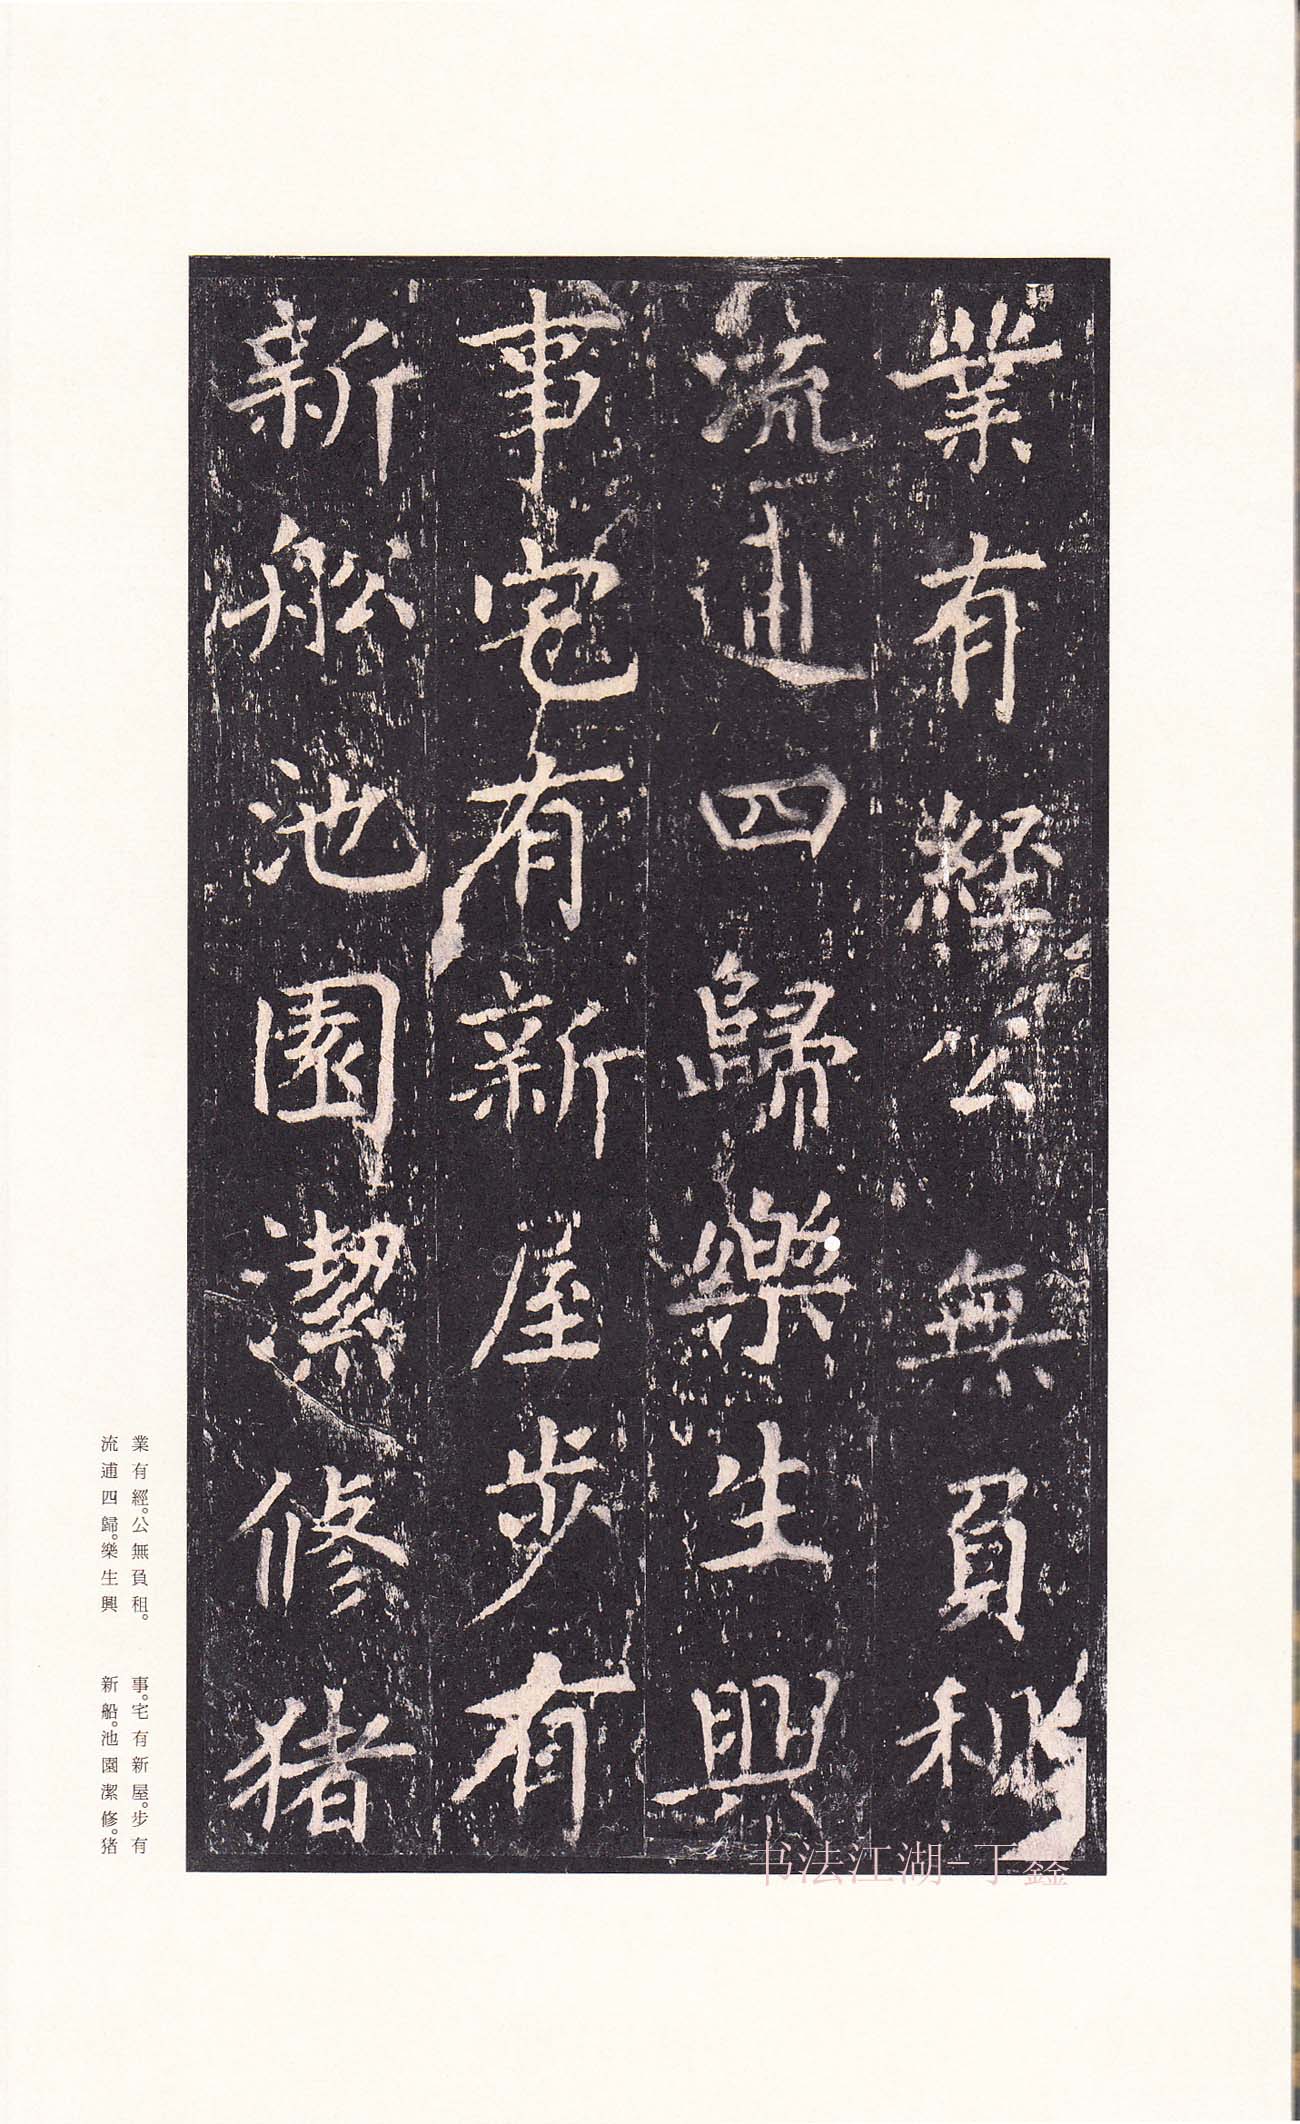 業有經公無負租
流逋四歸樂生興
事宅有新屋步有
新船池園潔修猪
業有經。公無負租。
流逋四歸。樂生興
事。宅有新屋。步有
新船。池園潔修。猪
书法江湖-丁鑫